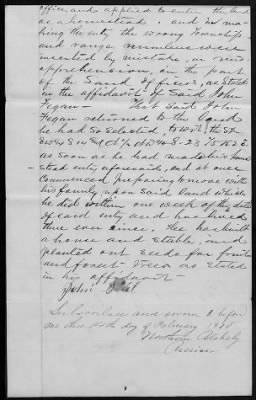 office, and applied to enter the land
as a homestead, and in ma-
king the entry the wrong Township
and range numbers were
inserted by mistake, or mis-
apprehension, on the part
of the Land officer, as stated
in the affidavit of Said John
Fegan — That Said John
Fegan returned to the land
he had so selected, to wit, the
as soon as he had made his home-
stead entry aforesaid, and at once
commenced preparing to move with
his family upon said land which
he did within one week of the date
of said entry and has lived
there ever since. He has built
a house and stable, and
planted out seeds for fruit
and forest trees as stated
in his affidavit —
John
Subscribed and sworn to before
me this day of February 18